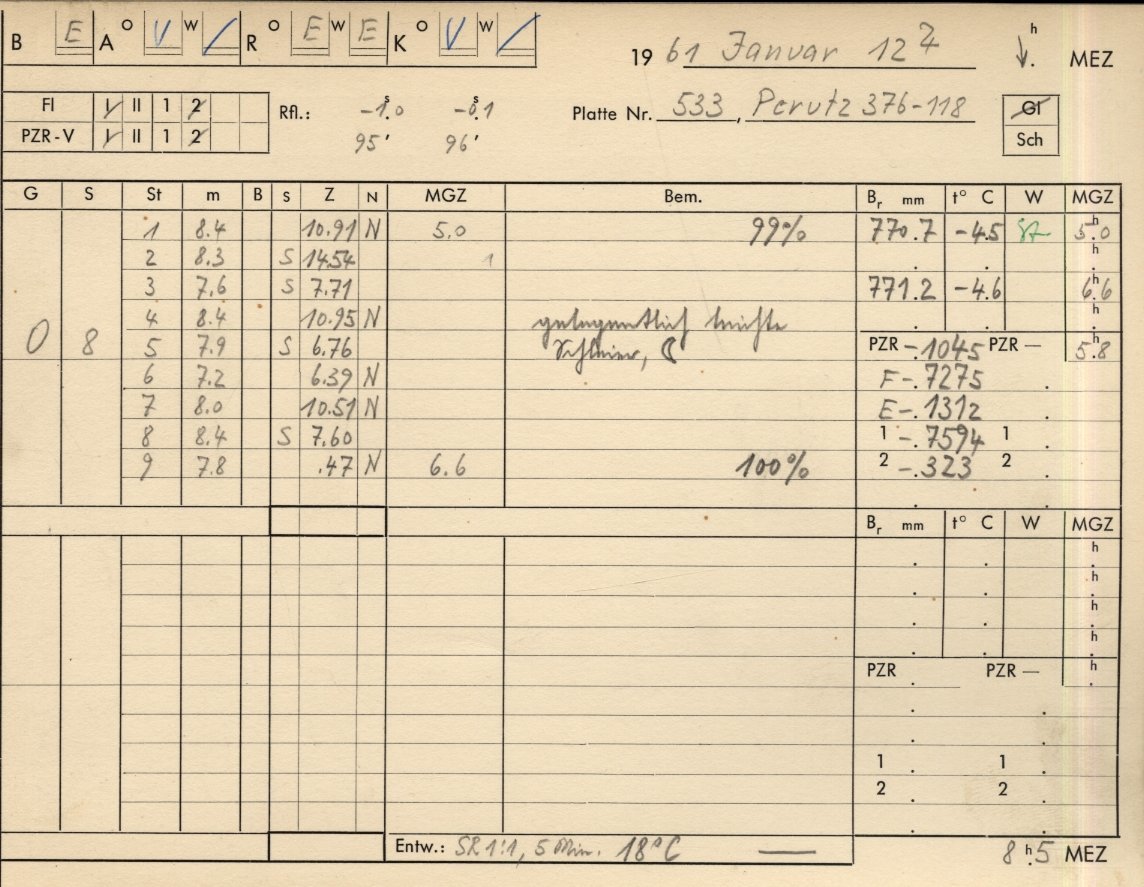 B E A O V W / R O E W E K O V W / 19 61 Januar 12 h MEZ
FI I II 1 2 Rfl.: -1.0 s -0.1 s Platte Nr. 533, Perutz 376-118 Gl
PZR-V I II 1 2 95' 96' Sch
G S St m B S Z N MGZ Bem. Br mm t° C W MGZ
1 8.4 10.91 N 5.0 99% 770.7 -4.5 5.0 h
2 8.3 S 14.54 1 h
3 7.6 S 7.71 771.2 -4.6 6.6 h
4 8.4 10.95 N gelegentlich leichte h
0 8 5 7.9 S 6.76 Schleier, ☾ PZR -.1045 PZR — 5.8 h
6 7.2 6.39 N F-.7275
7 8.0 10.51 N E-.1312
8 8.4 S 7.60 1 -.7594 1
9 7.8 .47 N 6.6 100% 2 -.323 2
Br mm t° C W MGZ
h
h
h
h
PZR PZR — h
1 1
2 2
Entw.: SR 1:1, 5 Min. 18°C — 8 h.5 MEZ